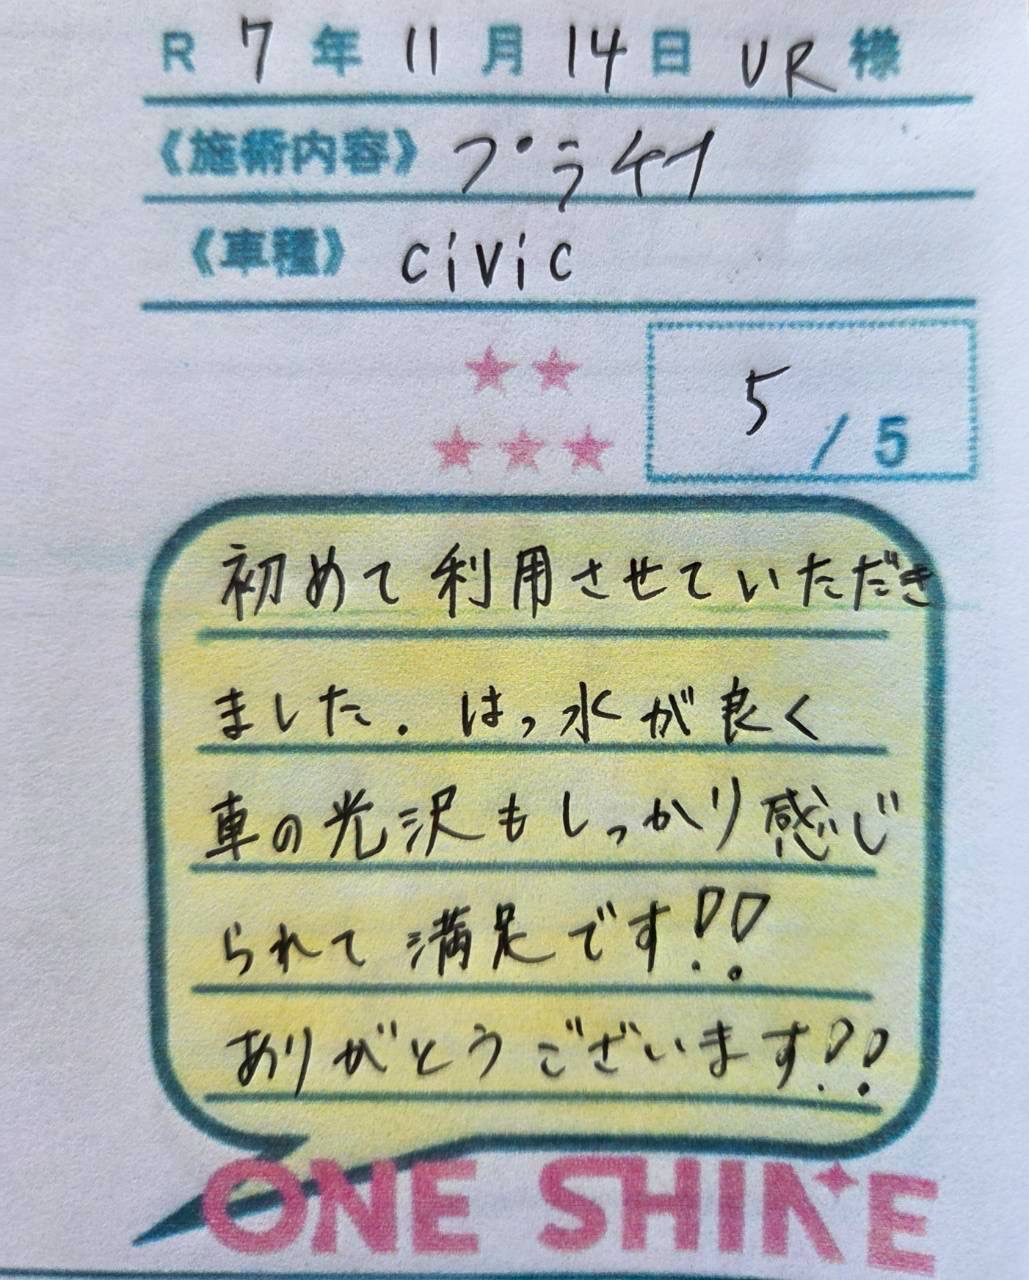 R 7 年 11 月 14 日 UR 様
《施術内容》
《車種》 civic
5 / 5
初めて利用させていただき
ました. はっ水が良く
車の光沢もしっかり感じ
られて満足です!!
ありがとうございます!!
ONE SHINE